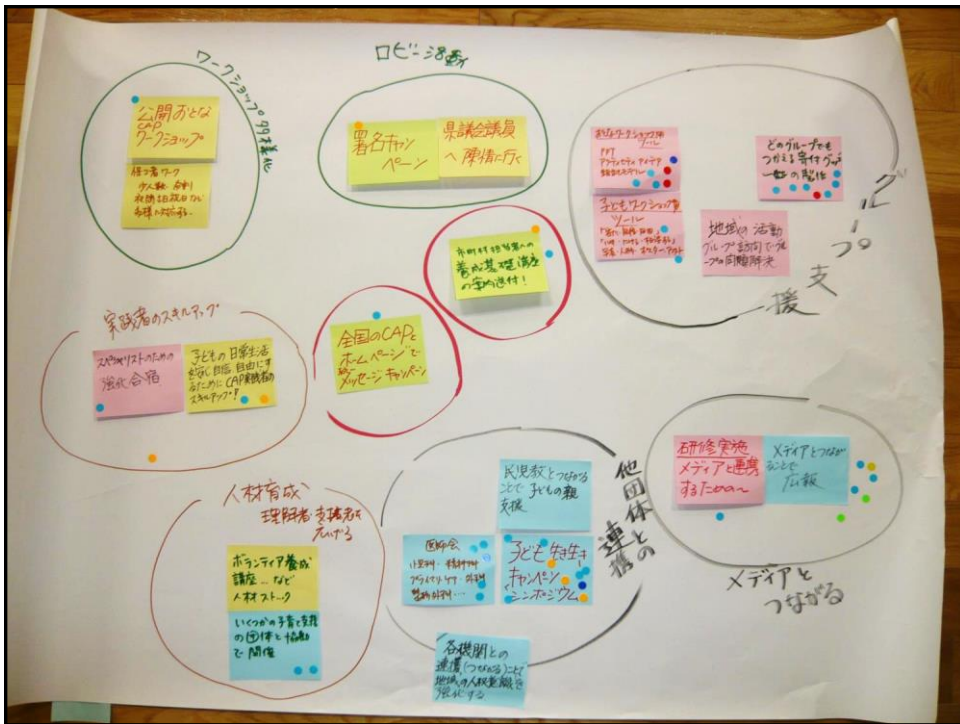 ワークショップ多様化
公開おとな
CAP
ワークショップ
ロビー活動
署名キャン
ペーン
県議会議員
へ陳情に行く
おとなワークショップ用
ツール
PPT
アクティビティ アイデア
子どもワークショップ用
ツール
どのグループでも
つかえる寄付グッズ
の製作
地域の活動
グループ訪問でグルー
プの問題解決
グループ支援
市町村担当者への
養成基礎講座
の案内送付!
全国のCAPと
ホームページで
メッセージキャンペーン
実践者のスキルアップ
スペシャリストのための
強化合宿
子どもの日常生活
を安心・自信・自由にす
るためにCAP実践者の
スキルアップ!
人材育成
理解者・支援者を
ひろげる
ボランティア養成
講座…など
人材ストック
いくつかの子育て支援
の団体と協働
で開催
他団体との
連携
民児教とつながる
ことで子どもの親
支援
医師会
小児科・精神科
プライマリケア・外科
整形外科…
子ども生き生き
キャンペーン
シンポジウム
各機関との
連携(つながる)ことで
地域の人権意識を
強化する
研修実施
メディアと連携
するための〜
メディアとつなが
ることで
広報
メディアと
つながる